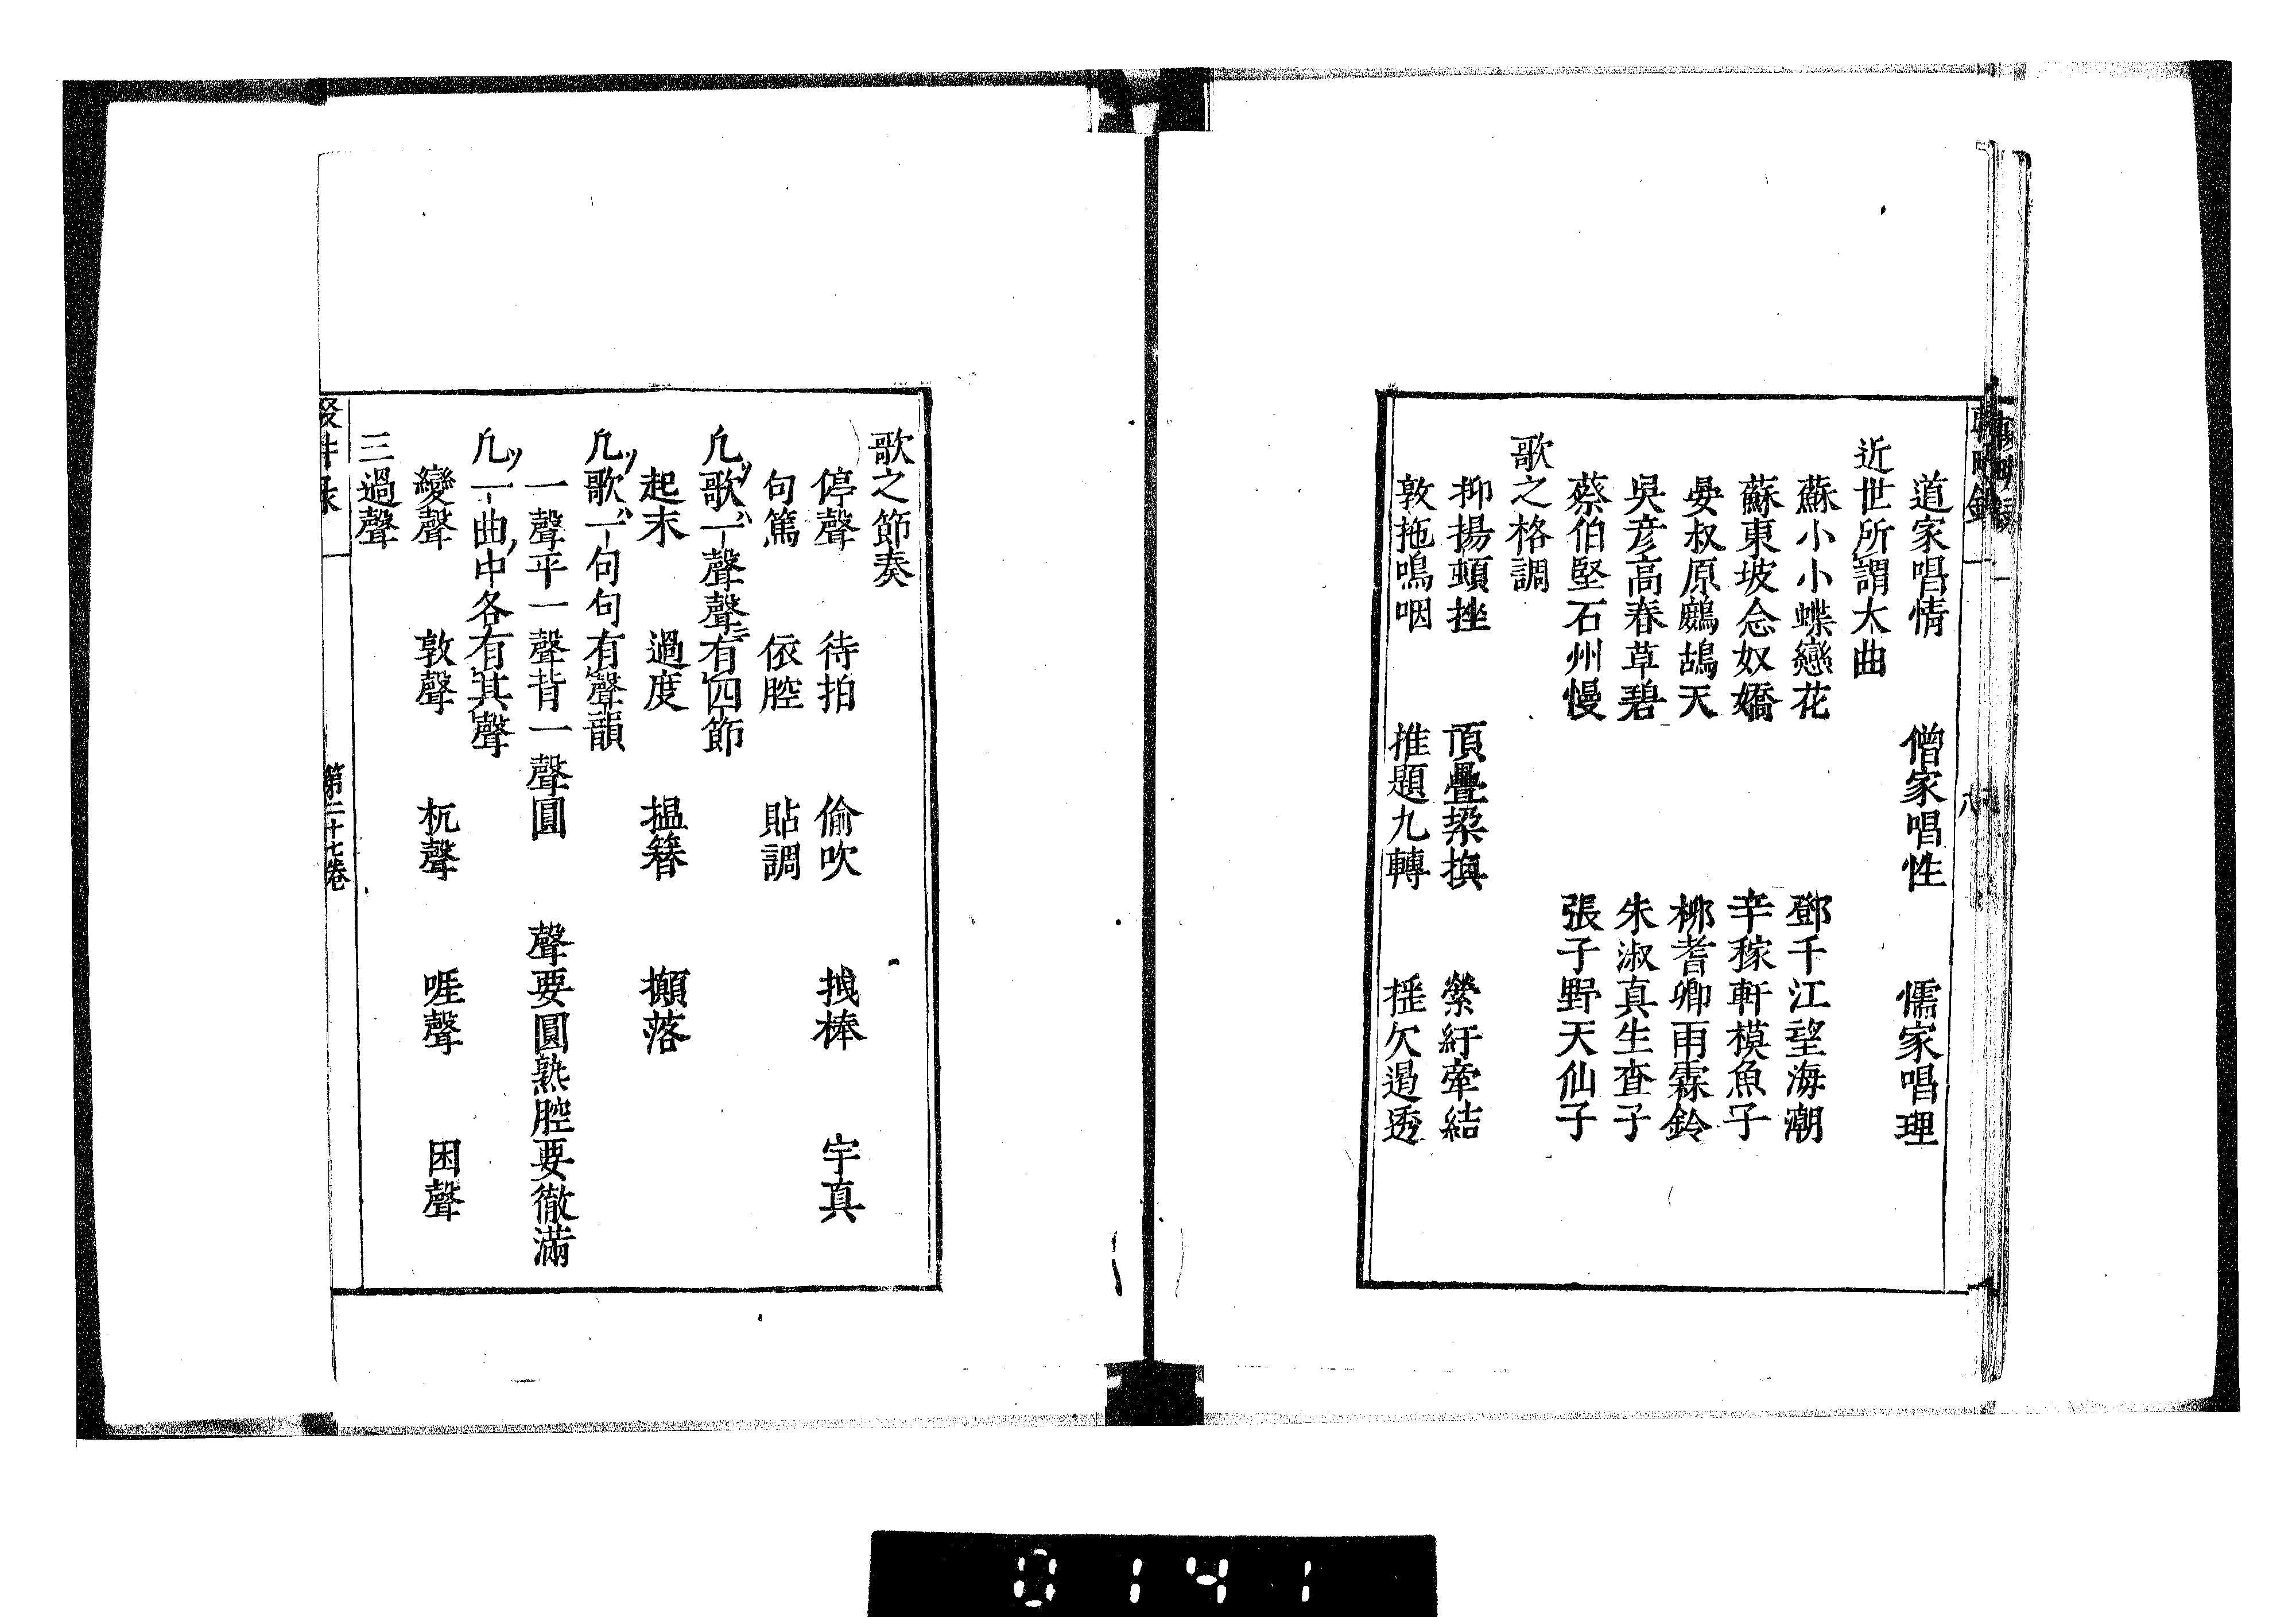 道家唱情　僧家唱性　儒家唱理
近世所謂大曲
蘇小小蝶戀花　鄧千江望海潮
蘇東坡念奴嬌　辛稼軒模魚子
晏叔原鷓鴣天　柳耆卿雨霖鈴
吳彥高春草碧　朱淑真生查子
蔡伯堅石州慢　張子野天仙子
歌之格調
抑揚頓挫　頂疊垜換　縈紆牽結
敦拖嗚咽　推題九轉　搖欠遏透
歌之節奏
停聲　待拍　偷吹　拽棒　字真
句篤　依腔　貼調
凡歌一聲聲有四節
起末　過度　搵簪　攧落
凡歌一句句有聲韻
一聲平一聲背一聲圓　聲要圓熟腔要徹滿
凡一曲中各有其聲
變聲　敦聲　杌聲　啀聲　困聲
三過聲
第二十七卷
0141